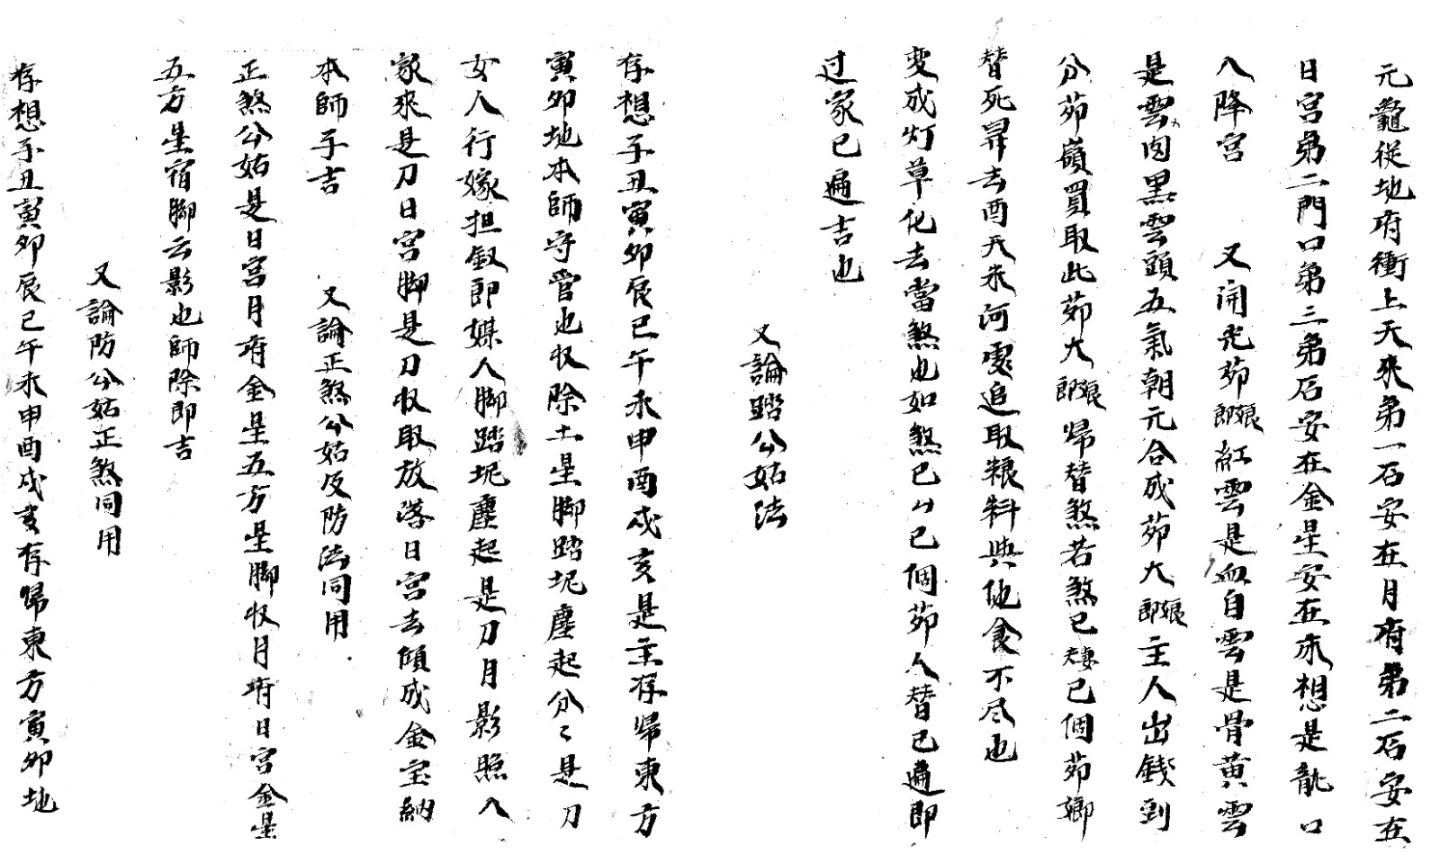 元龍從地府衝上天來弟一石安在月府弟二石安在
日宮弟二門口弟三弟石安在金星安在來想是龍口
入降宮　又開光茆郎娘紅雲是血白雲是骨黃雲
是雲肉黑雲頭五氣朝元合成茆大郎娘主人出錢到
分茆嶺買取此茆大郎娘歸替煞若煞已妻已個茆娜
替死昇去酉天來河雯追取粮料與他食不尽也
变成灯草化去當煞也如煞已々已個茆人替已遍即
过家已遍吉也
又論踏公姑法
存想子丑寅卯辰巳午未申酉戌亥是主存歸東方
寅卯地本師守管也收除土星脚踏坭塵起分々是刀
女人行嫁担釵即媒人脚踏坭塵起是刀月影照入
家來是刀日宮脚是刀收取放落日宮去傾成金宝納
本師子吉　又論正煞公姑及防法同用
正煞公姑是日宮月府金星五方星脚收月府日宮金星
五方星宿脚云影也師除即吉
又論防公姑正煞同用
存想子丑寅卯辰巳午未申酉戌亥存歸東方寅卯地